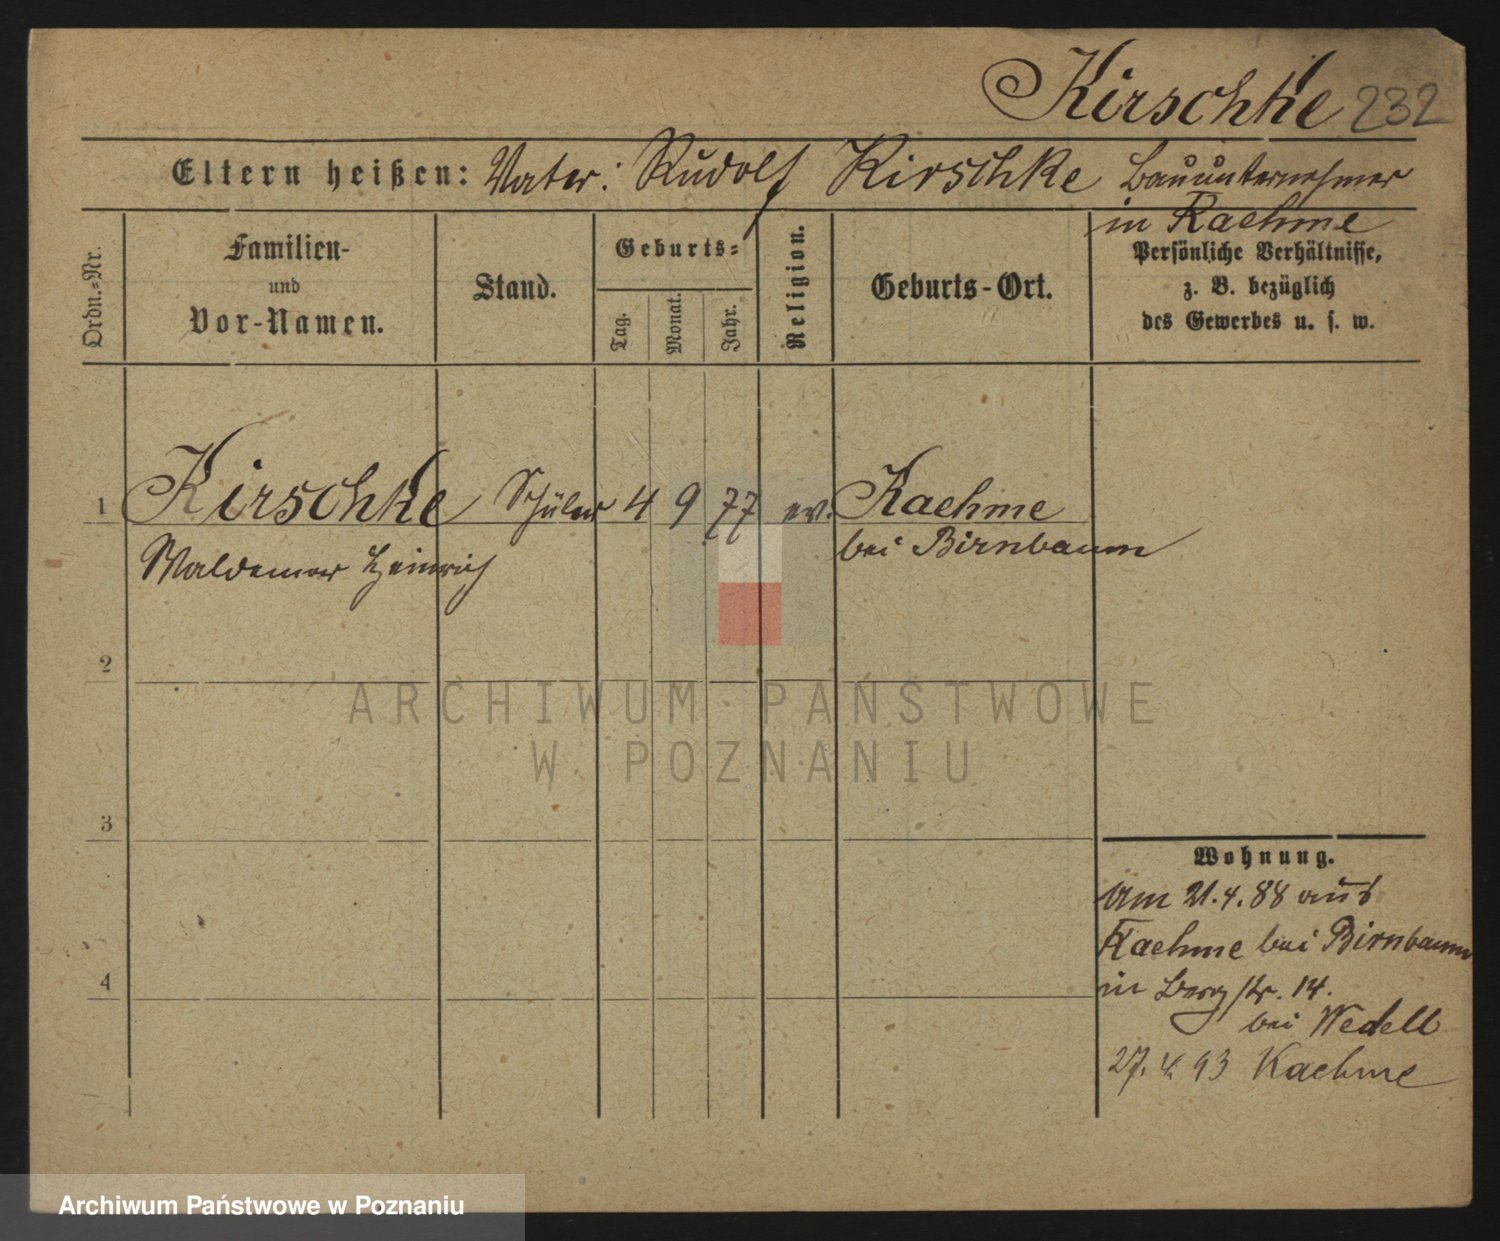 Kirschke 232
Eltern heißen: Vater: Rudolf Kirschke Bauunternehmer
in Kaehme
Ordn.=Nr.
Familien-
und
Vor-Namen.
Stand.
Geburts=
Tag.
Monat.
Jahr.
Religion.
Geburts-Ort.
Persönliche Verhältnisse,
z. B. bezüglich
des Gewerbes u. s. w.
1 Kirschke Schüler 4 9 77 ev. Kaehme
Waldemar Heinrich bei Birnbaum
2
ARCHIWUM PAŃSTWOWE
W POZNANIU
3
Wohnung.
Am 21.4.88 aus
Kaehme bei Birnbaum
4
in Bergstr. 14.
bei Wedell
27.4.93 Kaehme
Archiwum Państwowe w Poznaniu